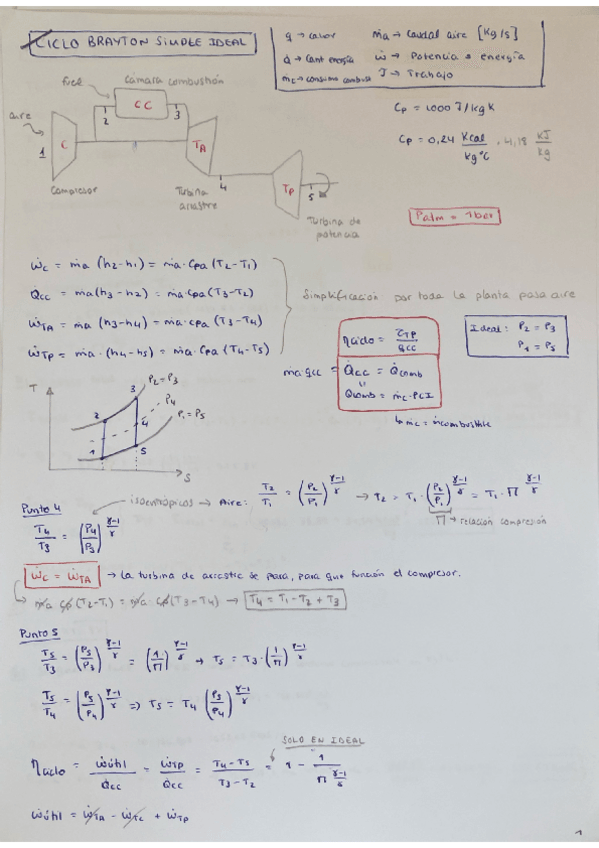 CICLO BRAYTON SIMPLE IDEAL
q → calor ṁa → caudal aire [Kg/s]
Q̇ → cant energía ẇ → Potencia o energía
ṁc → consumo combust. → Trabajo
fuel cámara combustión
CC
aire 2 3
1 C TA
4 TP 5
Compresor Turbina arrastre
Turbina de potencia
Cp = 1000 J/kg K
Cp = 0,24 Kcal/kg°C · 4,18 kJ/kg
Patm = 1 bar
ẇc = ṁa (h2-h1) = ṁa·cpa (T2-T1)
Qcc = ṁa(h3-h2) = ṁa·cpa(T3-T2)
ẇTA = ṁa (h3-h4) = ṁa·cpa (T3-T4)
ẇTP = ṁa·(h4-h5) = ṁa·Cpa (T4-T5)
Simplificación por toda la planta pasa aire
ηciclo = τTP/qcc
Ideal: P2 = P3
P1 = P5
ṁa·qcc = Q̇cc = Q̇comb
"
Qcomb = ṁc·PCI
↳ ṁc = ṁcombustible
T
P2 = P3
3
P4
P1 = P5
2
4
1 5
S
isoentrópicos → Aire: T2/T1 = (P2/P1)^γ-1/γ → T2 = T1·(P2/P1)^γ-1/γ = T1·Π^γ-1/γ
Π → relación compresión
Punto 4
T4/T3 = (P4/P3)^γ-1/γ
ẇc = ẇTA → La turbina de arrastre se para, para que función el compresor.
→ ṁa cp(T2-T1) = ṁa·cp(T3-T4) → T4 = T1 - T2 + T3
Punto 5
T5/T3 = (P5/P3)^γ-1/γ = (1/Π)^γ-1/γ → T5 = T3·(1/Π)^γ-1/γ
T5/T4 = (P5/P4)^γ-1/γ ⇒ T5 = T4 (P5/P4)^γ-1/γ
SOLO EN IDEAL
ηciclo = ẇútil/Q̇cc = ẇTP/Q̇cc = T4-T5/T3-T2 = 1 - 1/Π^γ-1/γ
ẇútil = ẇTA - ẇTc + ẇTP
1